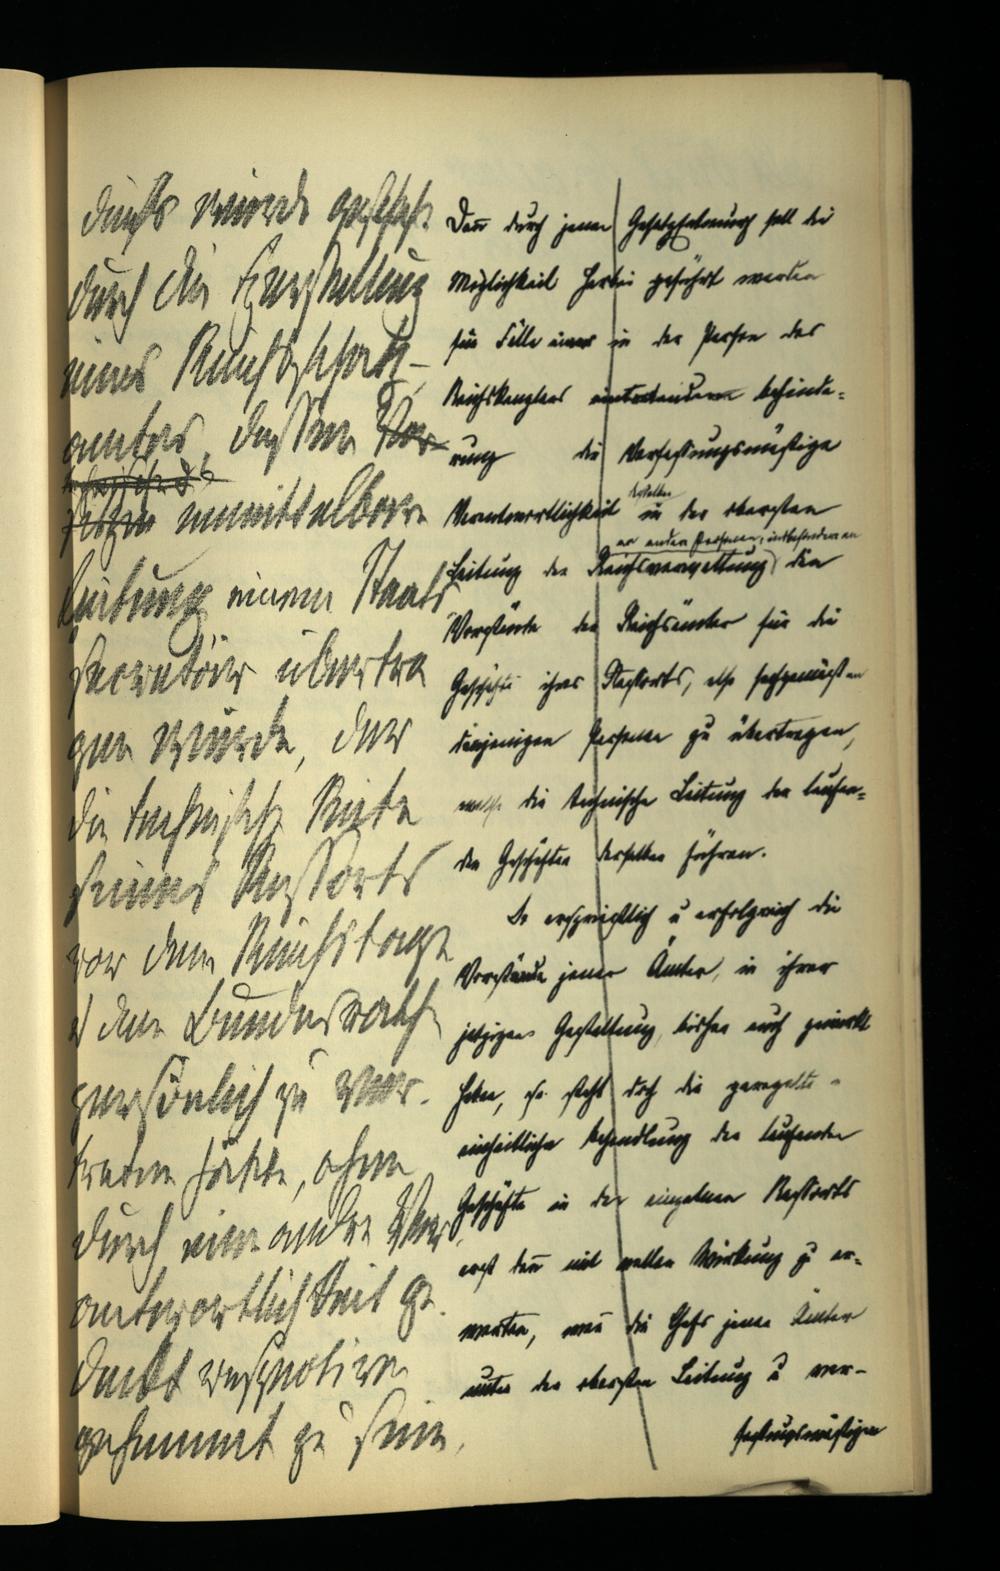 durch die Herstellung
eines Reichsschatz-
amtes, dessen Vor-
unmittelbare
Leitung einem Staats
secretär übertra
gen würde, der
die technische Seite
seines Ressorts
vor dem Reichstage
u dem Bundesrath
persönlich zu ver-
treten hätte, ohne
durch eine andre Ver
antwortlichkeit ge-
deckt respective
gehemmt zu sein,
Den durch jenen Gesetzentwurf soll die
Möglichkeit herbei geführt werden
für Fälle einer in der Person des
Reichskanzlers eintretenden behinde-
rung die Verfassungsmäßige
Verantwortlichkeit desselben in der obersten
an andere Personen, insbesondere an
Leitung der Reichsverwaltung den
Vorstände der Reichsämter für die
Geschäfte ihres Ressorts, also
denjenigen Personen zu übertragen,
welche die technische Leitung der laufen-
den Geschäfte derselben führen.
So ersprießlich u erfolgreich die
Vorstände jener Ämter, in ihrer
jetzigen Gestaltung, bisher auch gewirkt
haben, so steht doch die geregelte
einheitliche Behandlung der laufenden
Geschäfte in den einzelnen Ressorts
erst dan mit voller Wirkung zu er-
warten, wen die Chefs jener Ämter
unter der obersten Leitung u ver-
fassungsmäßigen